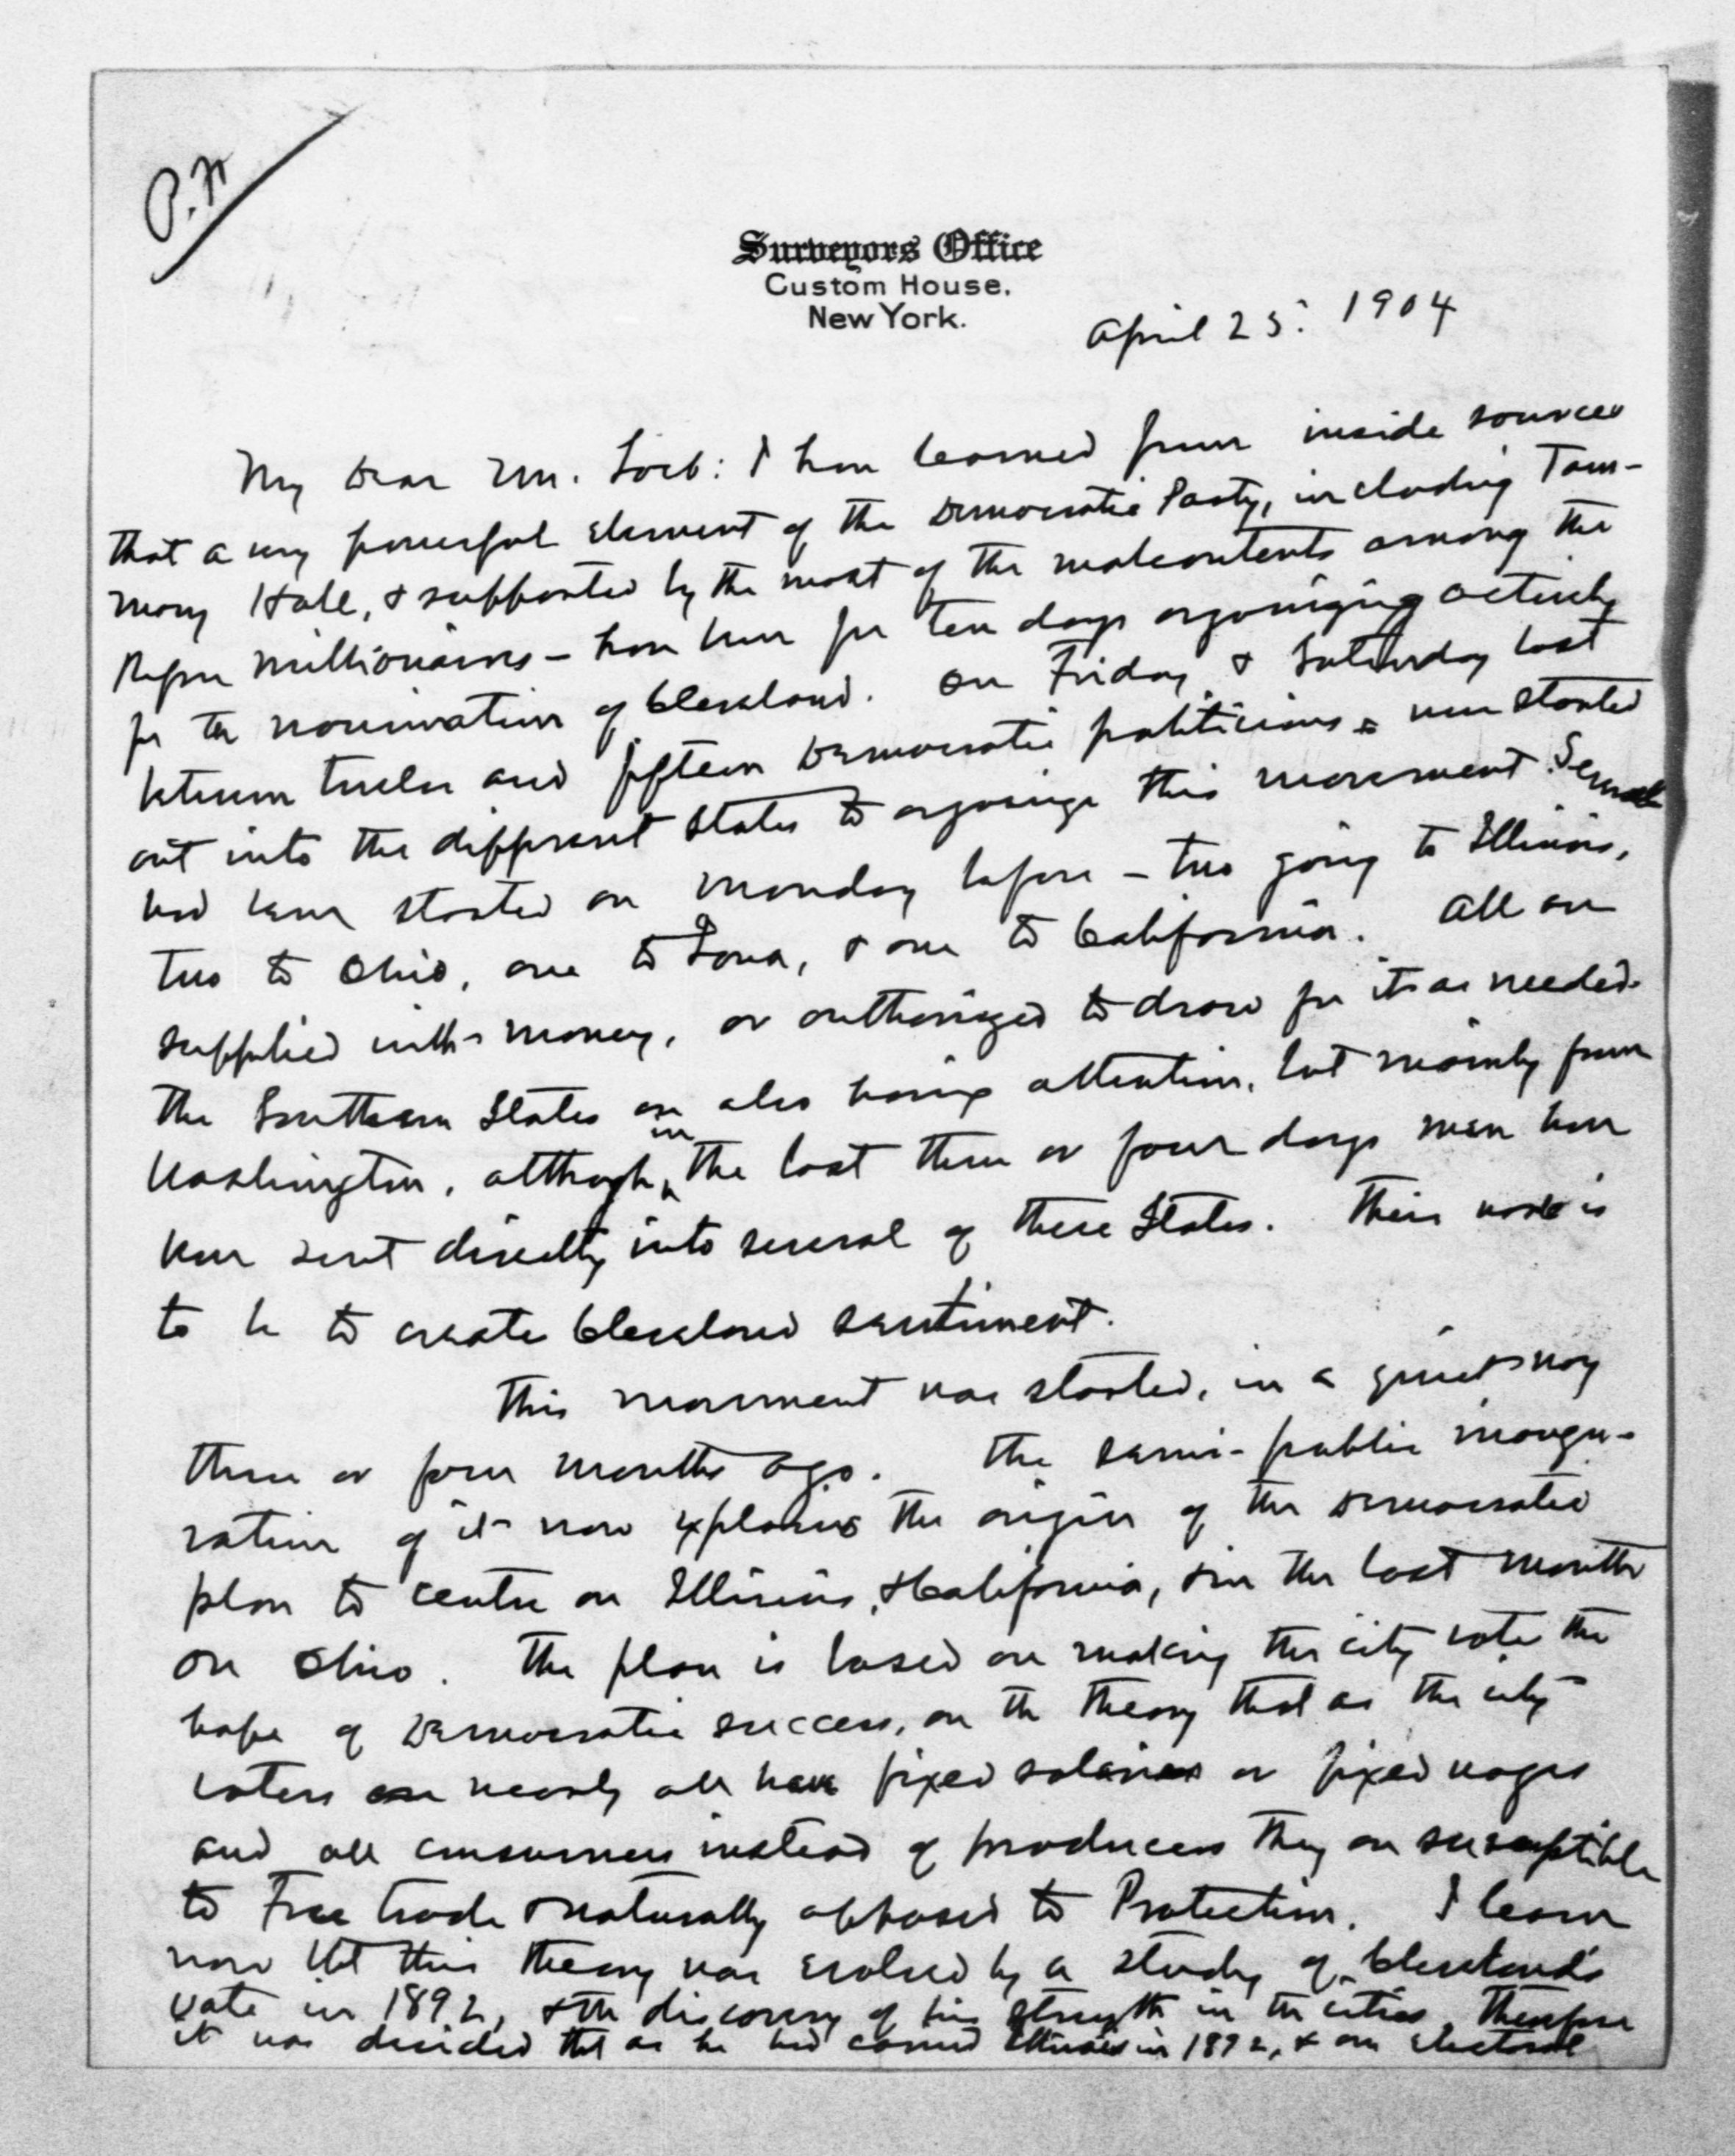 P.F
Surveyors Office
Custom House.
New York.
April 25. 1904
My Dear Mr. Loeb: I have learned from inside sources
that a very powerful element of the Democratic Party, including Tam-
many Hall, & supported by the most of the malcontents among the
Repn millionaires – have been for ten days organizing actively
for the nomination of Cleveland. On Friday & Saturday last
between twelve and fifteen Democratic politicians were started
out into the different States to organize this movement. Several
had been started on Monday before – two going to Illinois,
two to Ohio, one to Iowa, & one to California. All are
supplied with money, or authorized to draw for it as needed.
The Southern States are also having attention, but mainly from
Washington, although in the last three or four days men have
been sent directly into several of these States. Their work is
to be to create Cleveland sentiment.
This movement was started, in a quiet way
three or four months ago. The semi-public inaugu-
ration of it now explains the origin of the Democratic
plan to centre on Illinois, & California, & in the last month
on Ohio. The plan is based on making the city vote the
hope of Democratic success, on the theory that as the city
voters nearly all have fixed salaries or fixed wages
and all consumers instead of producers they are susceptible
to Free trade & naturally opposed to Protection. I learn
now that this theory was evolved by a study of Cleveland's
vote in 1892, & the discovery of his strength in the cities. Therefore
it was decided that as he had carried Illinois in 1892, & one electoral